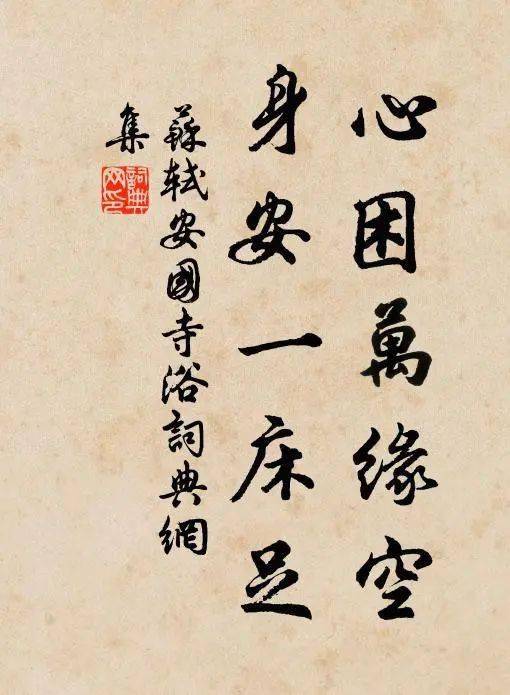 心困萬緣空
身安一床足
蘇軾安國寺浴詞典網
集
詞典
网印